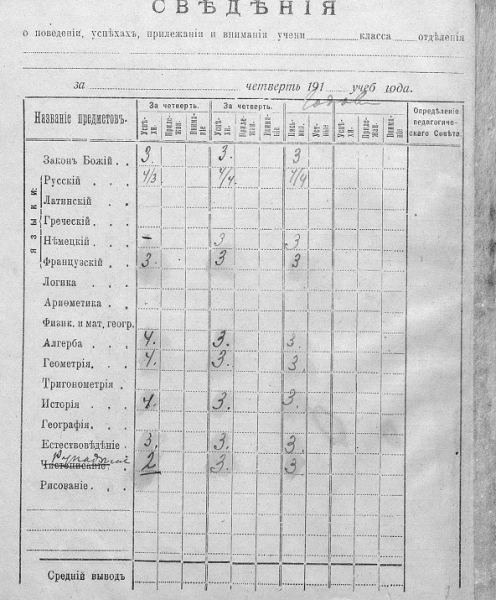 СВѢДѢНІЯ
о поведеніи, успѣхахъ, прилежаніи и вниманіи учени класса отдѣленія
за четверть 191 учеб года.
Названіе предметовъ. За четверть. За четверть. Годовая Опредѣленіе педагогическаго Совѣта.
Успѣхи. Прилежан. Вниманіе Успѣхи. Прилежан. Вниманіе Письмен. Устн. Успѣхи. Прилежан. Вниманіе
Законъ Божій 3 3. 3
ЯЗЫКИ:
Русскій 4/3 4/4. 4/4
Латинскій
Греческій
Нѣмецкій – 3 3.
Французскій 3. 3 3
Логика
Ариѳметика
Физик. и мат. геогр.
Алгебра 4. 3. 3.
Геометрія 4. 3. 3.
Тригонометрія
Исторія 4. 3. 3.
Географія
Естествовѣдѣніе 3. 3. 3.
Чистописаніе 2 3. 3
Рисованіе
Средній выводъ